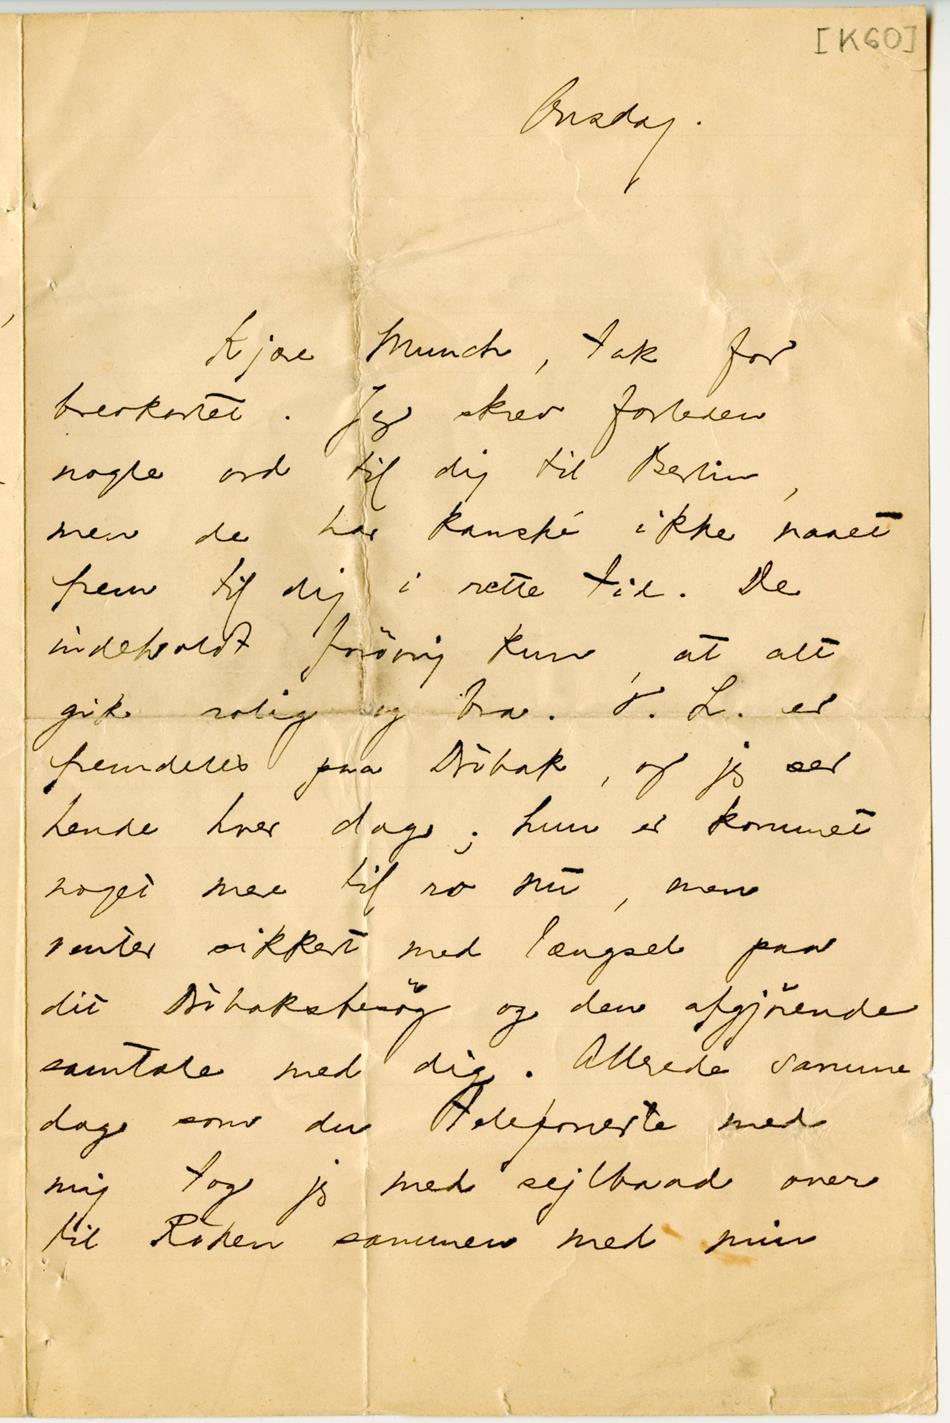 [K60]
Onsdag.
Kjære Munch, tak for
brevkortet. Jeg skrev forleden
nogle ord til dig til Berlin,
men de har kanské ikke naaet
frem til dig i rette tid. De
indeholdt forövrig kun, at alt
gik rolig og bra. T. L. er
fremdeles paa Dröbak, og jeg ser
hende hver dag; hun er kommet
noget mere til ro nu, men
venter sikkert med længsel paa
dit Dröbaksbesög og den afgjörende
samtale med dig. Allerede samme
dag som du telefonerte med
mig tog jeg med sejlbaad over
til Röden sammen med min